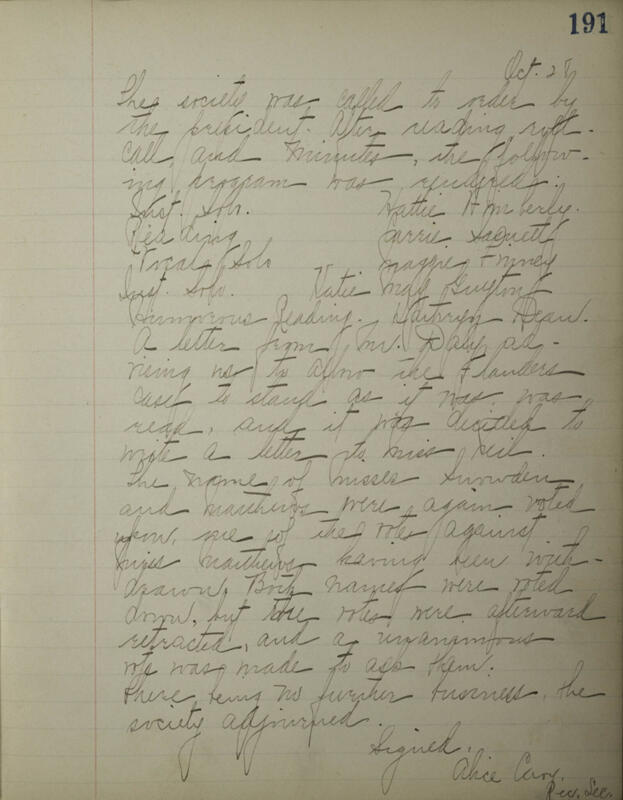 191
Oct. 28
The society was called to order by
the president. After reading roll-
call and minutes, the follow-
ing program was rendered:
Inst. Solo. Hattie Wimberly.
Reading Carrie
Vocal Solo Maggie Finney
Inst. Solo. Katie May Guyton
Humorous Reading. Kathryn Dean.
A letter from Mr. Daly ad-
vising us to allow the Flanders
case to stand as it was, was
read, and it was decided to
write a letter to Miss Neil.
The name of Misses Snowden
and Matthews were again voted
upon, one of the votes against
Miss Matthews having been with-
drawn. Both names were voted
down, but the votes were afterward
retracted, and a unanimous
vote was made to ask them.
There being no further business, the
society adjourned.
Signed.
Alice
Rec. Sec.